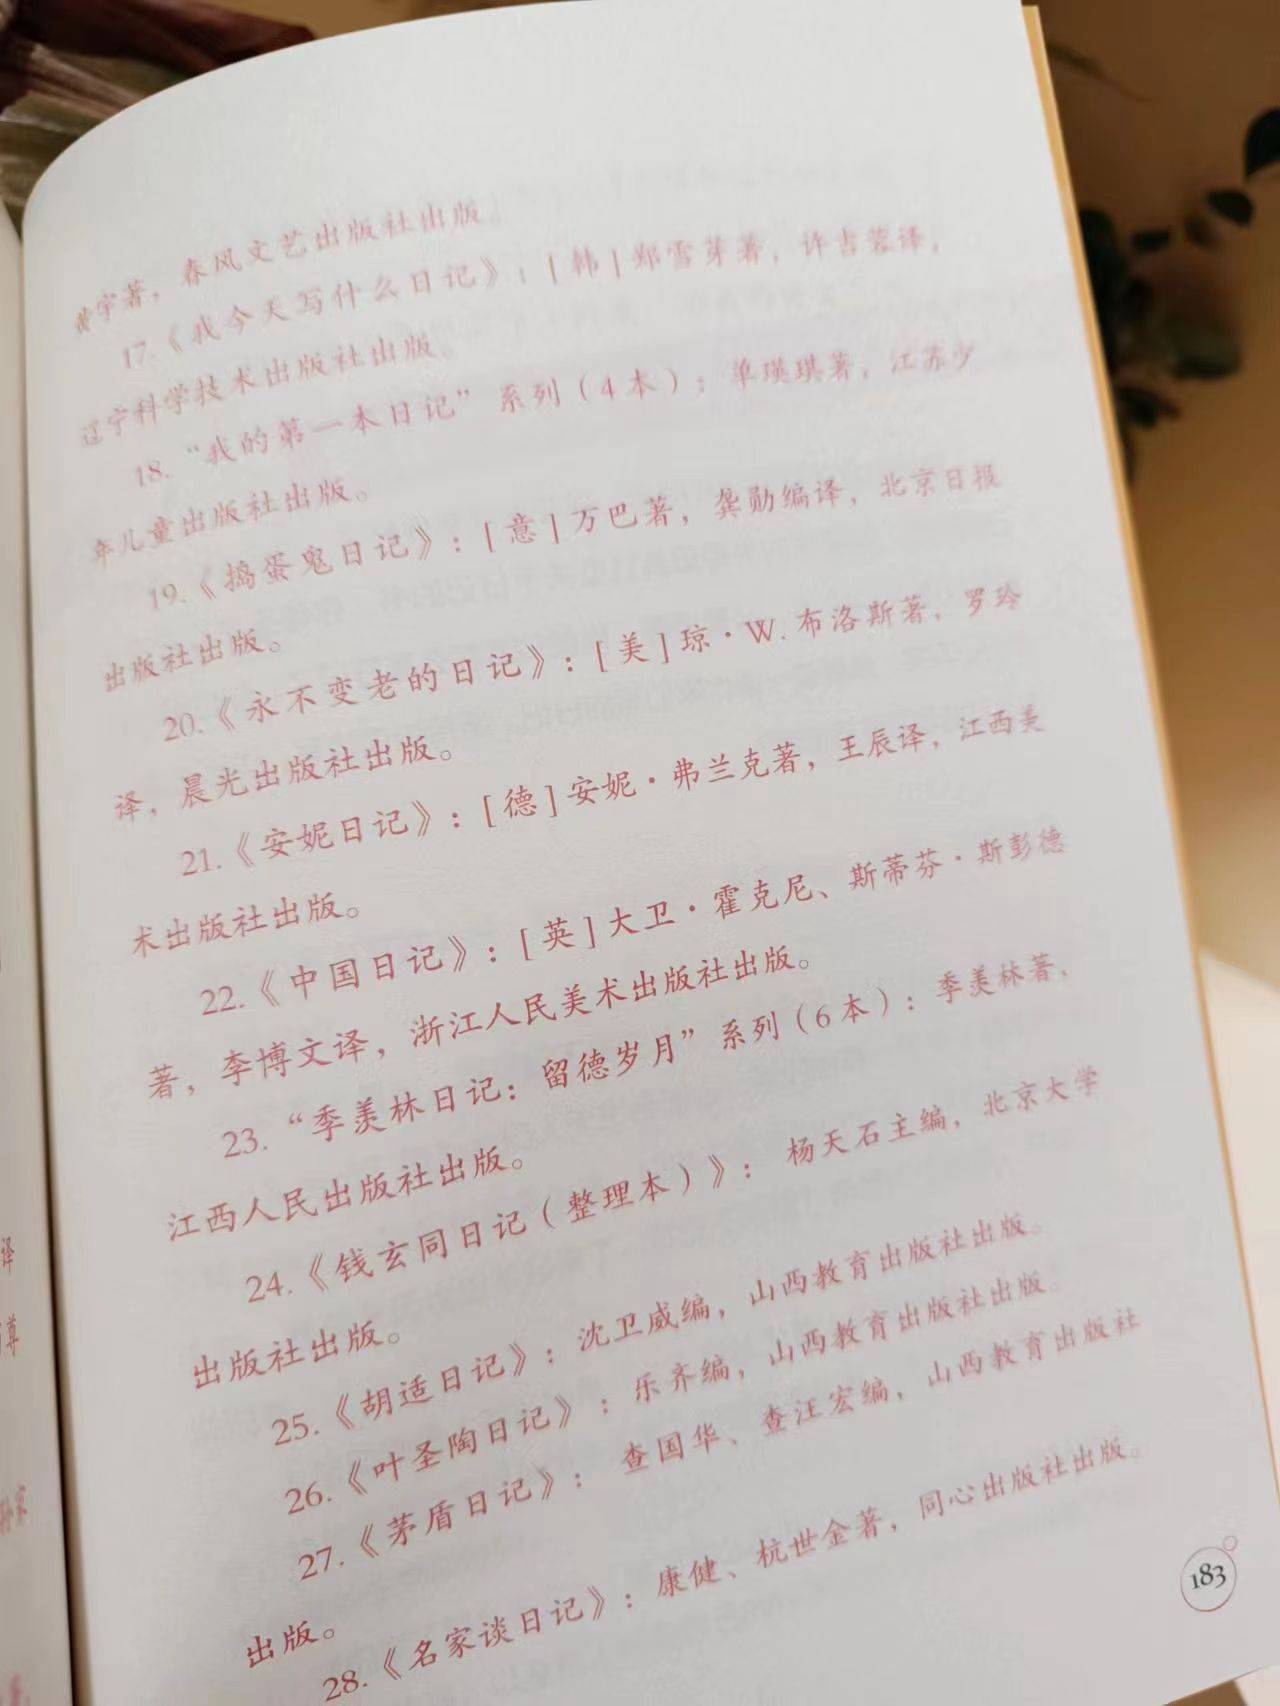 黄宇著，春风文艺出版社出版。
17.《我今天写什么日记》：[韩]郑雪芽著，许吉蓉译，
辽宁科学技术出版社出版。
18.“我的第一本日记”系列（4本）：单瑛琪著，江苏少
年儿童出版社出版。
19.《捣蛋鬼日记》：[意]万巴著，龚勋编译，北京日报
出版社出版。
20.《永不变老的日记》：[美]琼·W.布洛斯著，罗玲
译，晨光出版社出版。
21.《安妮日记》：[德]安妮·弗兰克著，王辰译，江西美
术出版社出版。
22.《中国日记》：[英]大卫·霍克尼、斯蒂芬·斯彭德
著，李博文译，浙江人民美术出版社出版。
23.“季羡林日记：留德岁月”系列（6本）：季羡林著，
江西人民出版社出版。
24.《钱玄同日记（整理本）》：杨天石主编，北京大学
出版社出版。
25.《胡适日记》：沈卫威编，山西教育出版社出版。
26.《叶圣陶日记》：乐齐编，山西教育出版社出版。
27.《茅盾日记》：查国华、查汪宏编，山西教育出版社
出版。
28.《名家谈日记》：康健、杭世金著，同心出版社出版。
183
译